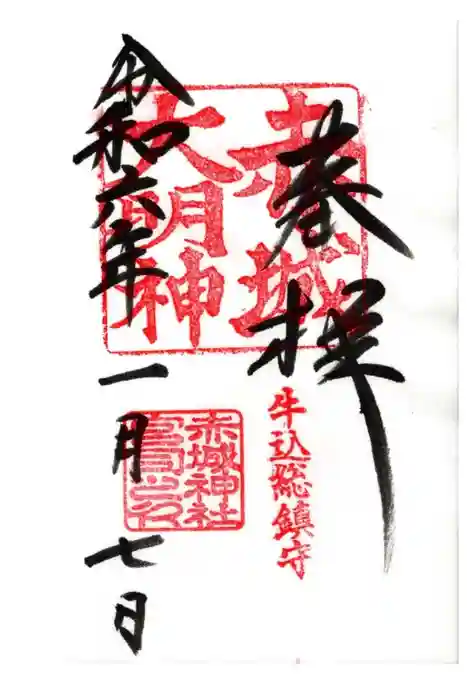 奉拝
赤城
大明神
牛込総鎮守
赤城神社
宮司之印
令和六年一月七日